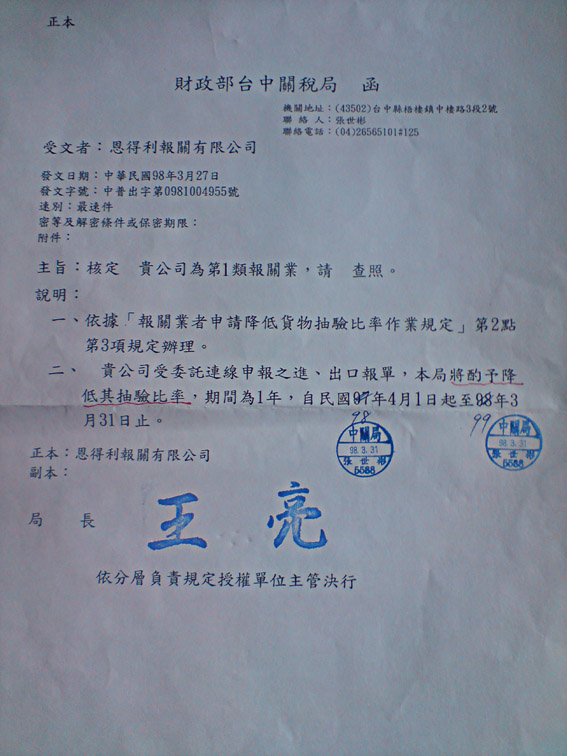 正本
財政部台中關稅局 函
機關地址：(43502)台中縣梧棲鎮中棲路3段2號
聯 絡 人：張世彬
聯絡電話：(04)26565101#125
受文者：恩得利報關有限公司
發文日期：中華民國98年3月27日
發文字號：中普出字第0981004955號
速別：最速件
密等及解密條件或保密期限：
附件：
主旨：核定 貴公司為第1類報關業，請 查照。
說明：
一、依據「報關業者申請降低貨物抽驗比率作業規定」第2點
第3項規定辦理。
二、 貴公司受委託連線申報之進、出口報單，本局將酌予降
低其抽驗比率，期間為1年，自民國97年4月1日起至98年3
月31日止。
98
99
中關局
98.3.31
張世彬
5588
中關局
98.3.31
張世彬
5588
正本：恩得利報關有限公司
副本：
局 長 王 亮
依分層負責規定授權單位主管決行